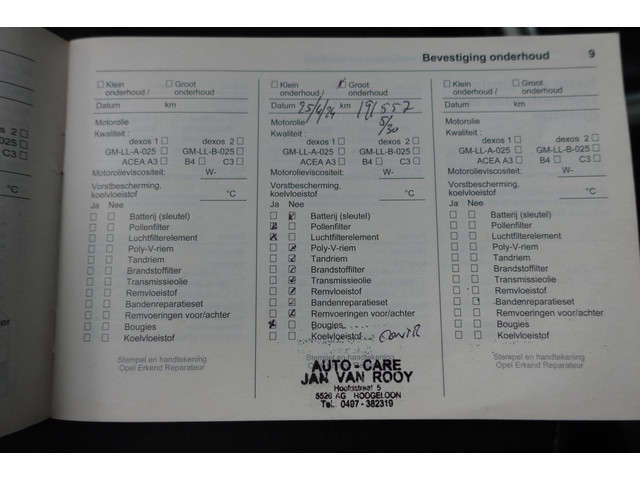 Bevestiging onderhoud 9
Klein onderhoud / Groot onderhoud
Datum km
Motorolie
Kwaliteit :
dexos 1 dexos 2
GM-LL-A-025 GM-LL-B-025
ACEA A3 B4 C3
Motorolieviscositeit: W-
Vorstbescherming, koelvloeistof °C
Ja Nee
Batterij (sleutel)
Pollenfilter
Luchtfilterelement
Poly-V-riem
Tandriem
Brandstoffilter
Transmissieolie
Remvloeistof
Bandenreparatieset
Remvoeringen voor/achter
Bougies
Koelvloeistof
Stempel en handtekening
Opel Erkend Reparateur
Klein onderhoud / Groot onderhoud
Datum 25/6/24 km 191557
Motorolie 5/30
Kwaliteit :
dexos 1 dexos 2
GM-LL-A-025 GM-LL-B-025
ACEA A3 B4 C3
Motorolieviscositeit: W-
Vorstbescherming, koelvloeistof °C
Ja Nee
Batterij (sleutel)
Pollenfilter
Luchtfilterelement
Poly-V-riem
Tandriem
Brandstoffilter
Transmissieolie
Remvloeistof
Bandenreparatieset
Remvoeringen voor/achter
Bougies
Koelvloeistof CONTR
Stempel en handtekening
AUTO-CARE
JAN VAN ROOY
Hoofdstraat 5
5526 AG HOOGELOON
Tel. 0497-382319
Klein onderhoud / Groot onderhoud
Datum km
Motorolie
Kwaliteit :
dexos 1 dexos 2
GM-LL-A-025 GM-LL-B-025
ACEA A3 B4 C3
Motorolieviscositeit: W-
Vorstbescherming, koelvloeistof °C
Ja Nee
Batterij (sleutel)
Pollenfilter
Luchtfilterelement
Poly-V-riem
Tandriem
Brandstoffilter
Transmissieolie
Remvloeistof
Bandenreparatieset
Remvoeringen voor/achter
Bougies
Koelvloeistof
Stempel en handtekening
Opel Erkend Reparateur